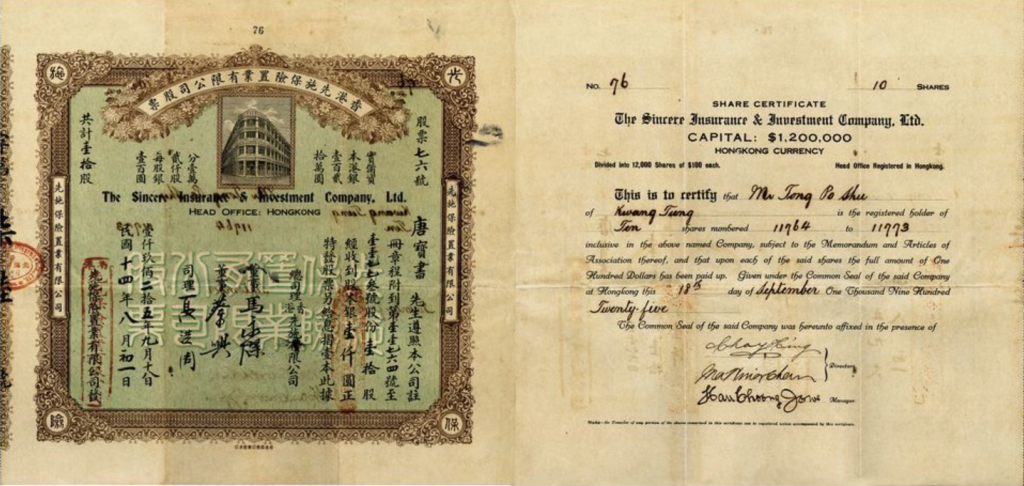 76
香港先施保險置業有限公司股票
先
施
保
險
股票七六號
實備資
本港銀
壹百貳
拾萬圓
分壹萬
貳仟股
每股銀
壹百圓
共計壹拾股
先施保險置業有限公司
先施保險置業有限公司
The Sincere Insurance & Investment Company, Ltd.
HEAD OFFICE: HONGKONG
唐寶書 先生遵照本公司註
冊章程附到第壹壹七六四號至
壹壹七七叁號股份壹拾股
經收到股本銀壹仟圓正
特發股票另給息摺壹本此據
香港先施保險有限公司
總司理
董事
司理
壹仟九佰二拾五年九月十八日
民國十四年八月初一日
先施保險置業有限公司發
No. 76
10 SHARES
SHARE CERTIFICATE
The Sincere Insurance & Investment Company, Ltd.
CAPITAL: $1,200,000
HONGKONG CURRENCY
Divided into 12,000 Shares of $100 each.
Head Office Registered in Hongkong.
This is to certify that Mr Tong Po Shu
of Kwang Tung is the registered holder of
Ten shares numbered 11764 to 11773
inclusive in the above named Company, subject to the Memorandum and Articles of
Association thereof, and that upon each of the said shares the full amount of One
Hundred Dollars has been paid up. Given under the Common Seal of the said Company
at Hongkong this 18th day of September One Thousand Nine Hundred
Twenty-five
The Common Seal of the said Company was hereunto affixed in the presence of
Directors
Manager